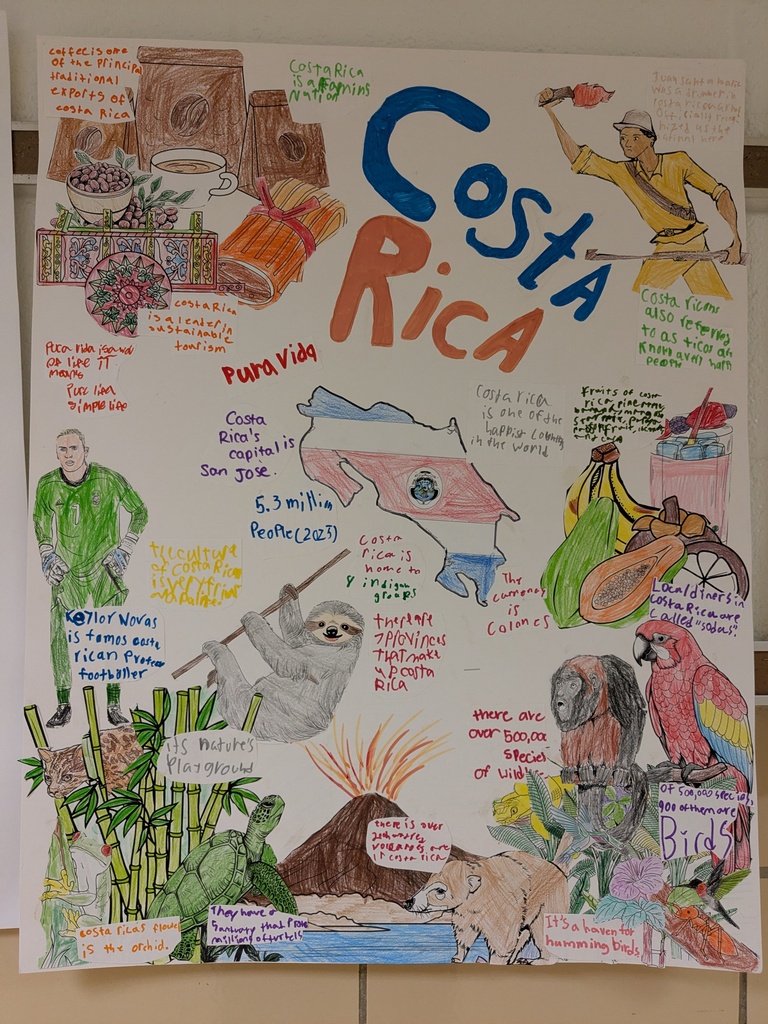 coffee is one
of the principal
traditional
exports of
costa rica
Costa Rica
is a
Nation
Costa
Rica
was a
costa rican
costa Rica
is a leader in
sustainable
tourism
Costa ricans
also refering
to as ticos are
Known avery
people
Pura vida is
of life IT
means
Pure life
simple life
Pura Vida
Costa
Rica's
capital is
San Jose.
Costa Rica
is one of the
happist
in the world
Fruits of costa
rica
5.3 million
People (2023)
the culture
of costa Rica
is very
Costa
rica is
home to
8 indigan
groups
The
currency
is
Colones
Local diners in
Costa Rica are
called "sodas".
Keylor Novas
is famos costa
rican
footballer
there are
7 provinces
that make
up costa
Rica
its nature's
Playground
there are
over 500,000
species
of wildlife
of 500,000 species
900 of them are
Birds
there is over
volcanos
costa rica
costa ricas flower
is the orchid.
They have a
that
millions of turtels
It's a haven for
humming birds